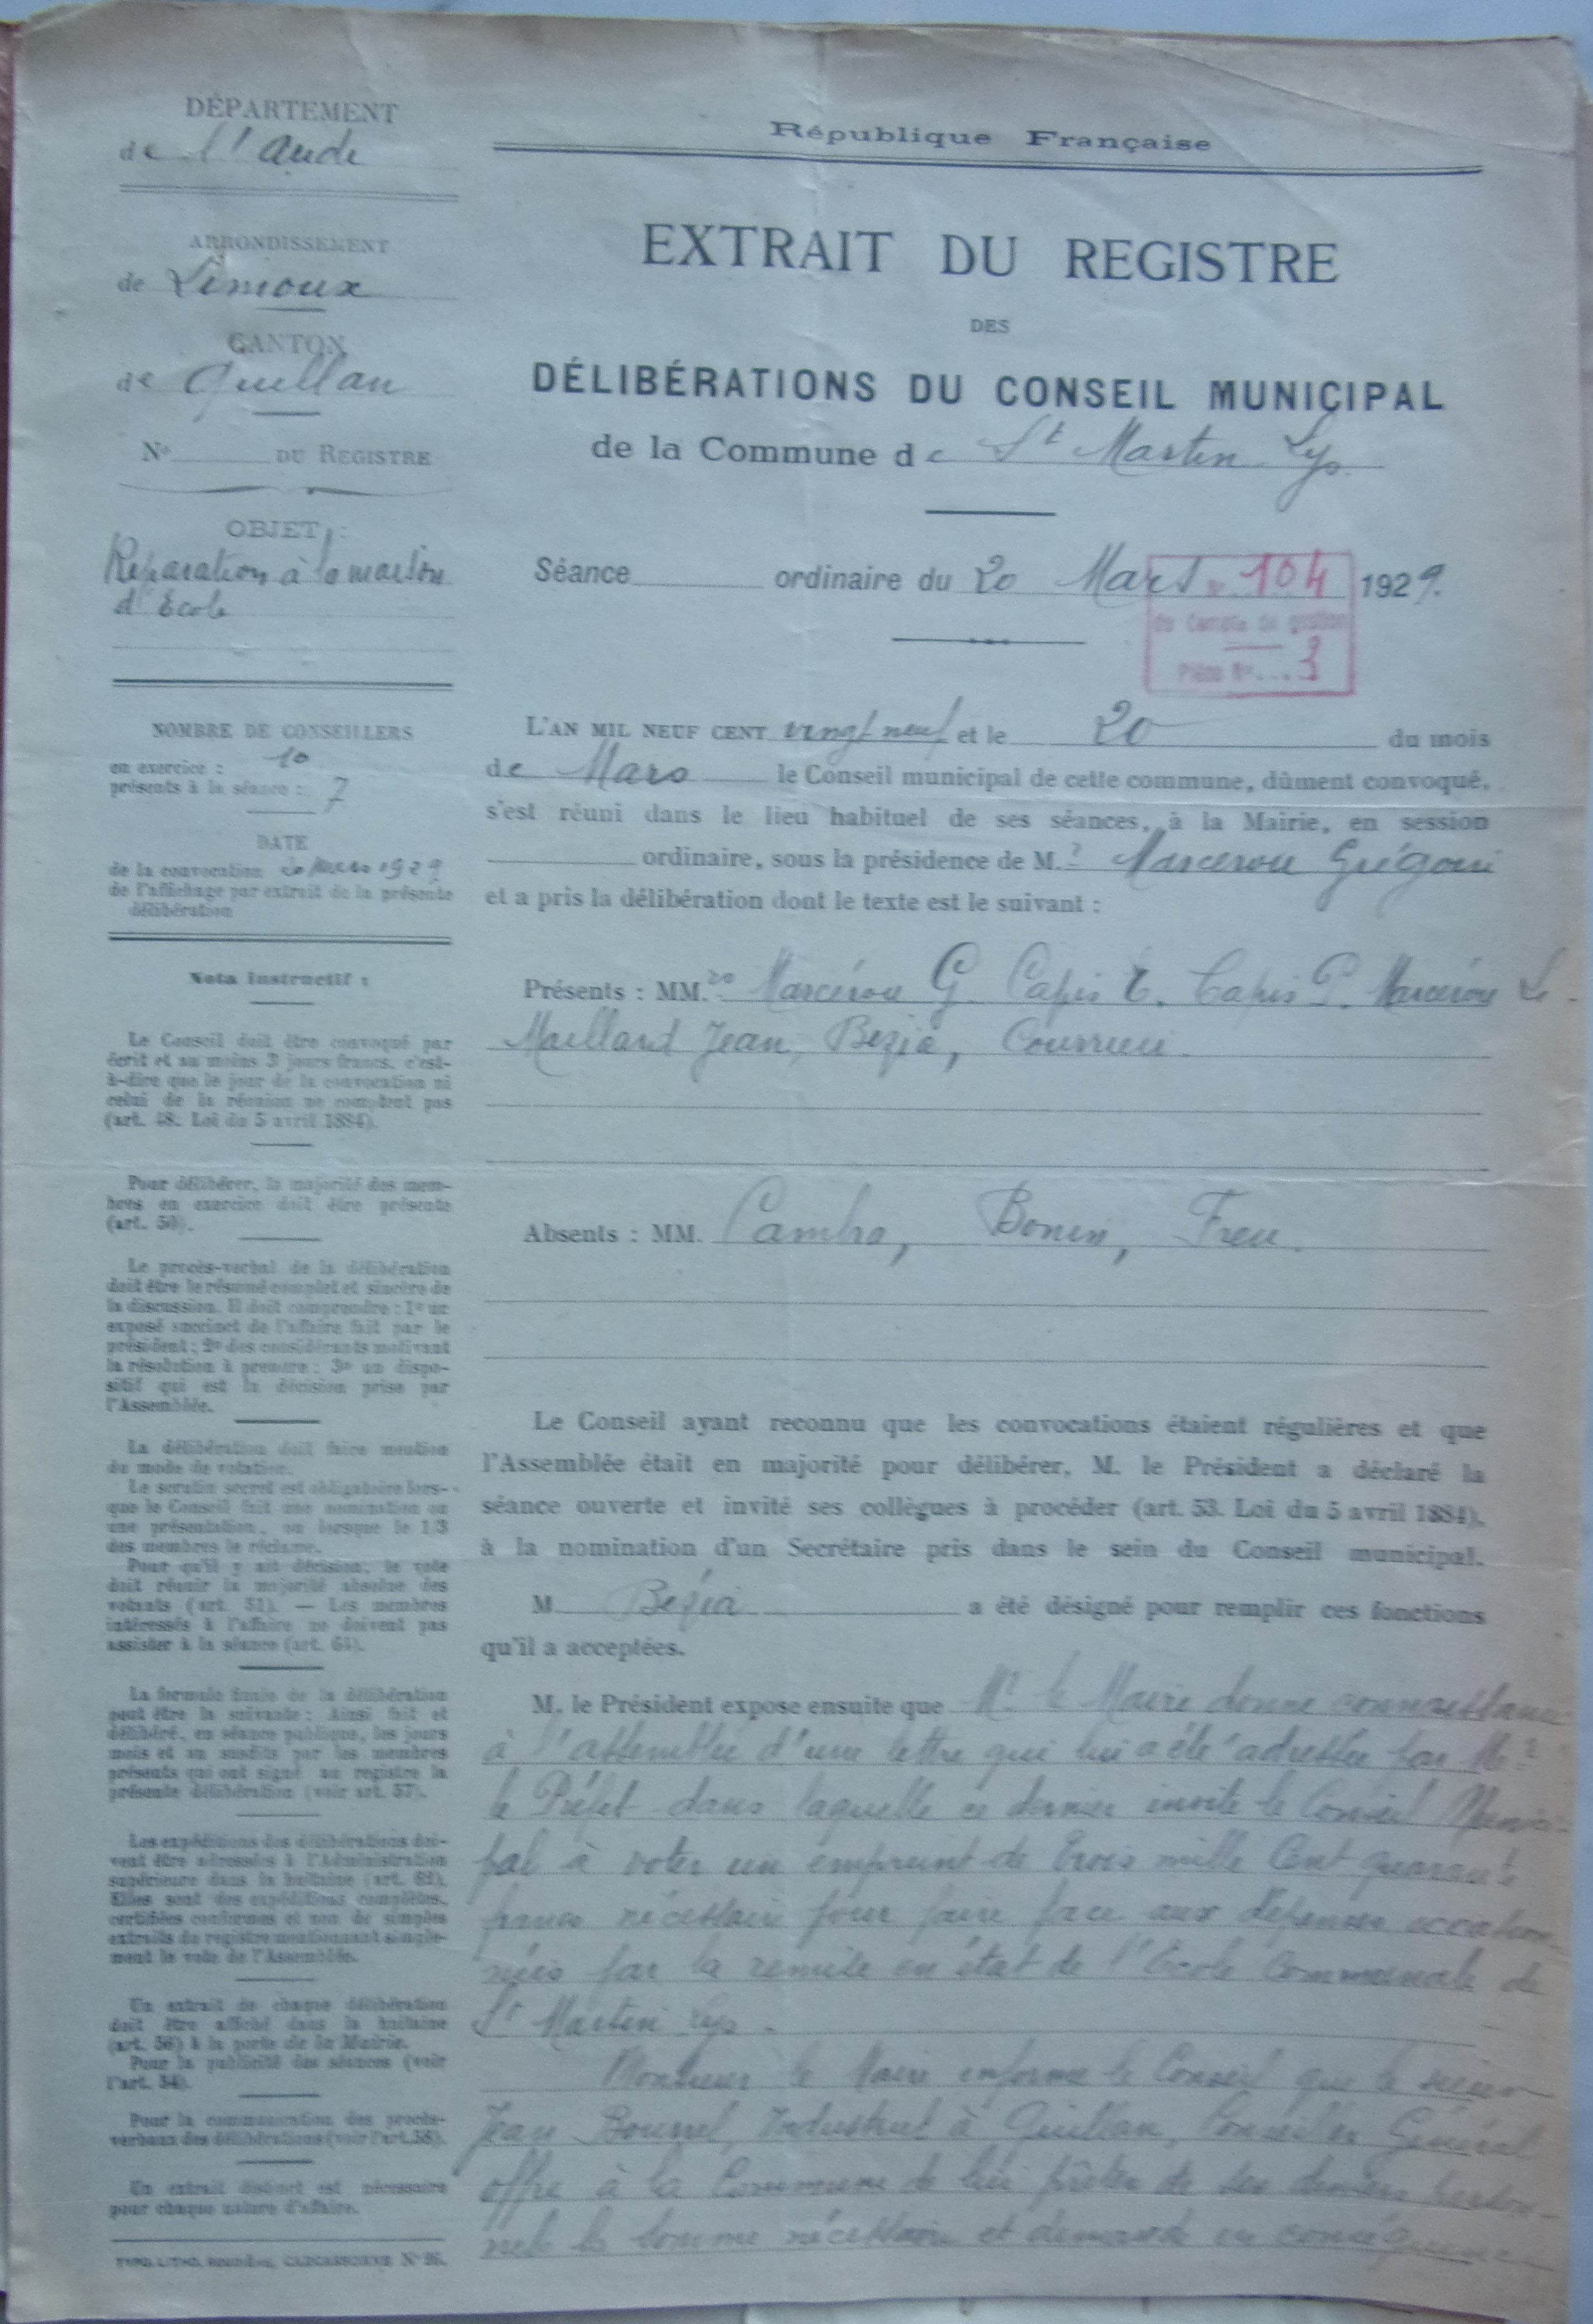 DÉPARTEMENT
de l'Aude
ARRONDISSEMENT
de Limoux
CANTON
de Quillan
N° DU REGISTRE
OBJET :
Réparation à la maison
d'École
NOMBRE DE CONSEILLERS
en exercice : 10
présents à la séance : 7
DATE
de la convocation 20 Mars 1929
de l'affichage par extrait de la présente
délibération
Nota Instructif :
Le Conseil doit être convoqué par
écrit et au moins 3 jours francs, c'est-
à-dire que le jour de la convocation ni
celui de la réunion ne comptent pas
(art. 48. Loi du 5 avril 1884).
Pour délibérer, la majorité des mem-
bres en exercice doit être présente
(art. 50).
Le procès-verbal de la délibération
doit être le résumé complet et sincère de
la discussion. Il doit comprendre : 1° un
exposé succinct de l'affaire fait par le
président ; 2° des considérants motivant
la résolution à prendre ; 3° un dispo-
sitif qui est la décision prise par
l'Assemblée.
La délibération doit faire mention
du mode de votation.
Le scrutin secret est obligatoire lors-
que le Conseil fait une nomination ou
une présentation, ou lorsque le 1/3
des membres le réclame.
Pour qu'il y ait décision, le vote
doit réunir la majorité absolue des
votants (art. 51). — Les membres
intéressés à l'affaire ne doivent pas
assister à la séance (art. 64).
La formule finale de la délibération
peut être la suivante : Ainsi fait et
délibéré, en séance publique, les jours
mois et an susdits par les membres
présents qui ont signé au registre la
présente délibération (voir art. 57).
Les expéditions des délibérations doi-
vent être adressées à l'Administration
supérieure dans la huitaine (art. 62).
Elles sont des expéditions complètes,
certifiées conformes et non de simples
extraits du registre mentionnant simple-
ment le vote de l'Assemblée.
Un extrait de chaque délibération
doit être affiché dans la huitaine
(art. 56) à la porte de la Mairie.
Pour la publicité des séances (voir
l'art. 54).
Pour la communication des procès-
verbaux des délibérations (voir l'art. 58).
Un extrait distinct est nécessaire
pour chaque nature d'affaire.
TYPO. LITHO. CARCASSONNE N° 26.
République Française
EXTRAIT DU REGISTRE
DES
DÉLIBÉRATIONS DU CONSEIL MUNICIPAL
de la Commune de St Martin Lys
Séance ordinaire du 20 Mars 1929.
104
du Compte de gestion
Pièce N° ... 3
L'AN MIL NEUF CENT vingt neuf et le 20 du mois
de Mars le Conseil municipal de cette commune, dûment convoqué,
s'est réuni dans le lieu habituel de ses séances, à la Mairie, en session
ordinaire, sous la présidence de M. Marcerou Grégoire
et a pris la délibération dont le texte est le suivant :
Présents : MM. Marcérou G. Capis P. Marcérou
Maillard Jean, Bezia,
Absents : MM. Bonen,
Le Conseil ayant reconnu que les convocations étaient régulières et que
l'Assemblée était en majorité pour délibérer, M. le Président a déclaré la
séance ouverte et invité ses collègues à procéder (art. 53. Loi du 5 avril 1884),
à la nomination d'un Secrétaire pris dans le sein du Conseil municipal.
M Bezia a été désigné pour remplir ces fonctions
qu'il a acceptées.
M. le Président expose ensuite que Mr le Maire donne connaissance
à l'assemblée d'une lettre qui lui a été adressée par Mr
le Préfet dans laquelle ce dernier invite le Conseil Munici-
pal à voter un emprunt de trois mille Cent quarante
francs nécessaire pour faire face aux dépenses occasion
nées par la remise en état de l'École Communale de
St Martin Lys.
Monsieur le Maire informe le Conseil que le sieur
Jean Bourrel, Industriel à Quillan, Conseiller Général
offre à la Commune de lui prêter de ses deniers person-
nels la somme nécessaire et demande en conséquence